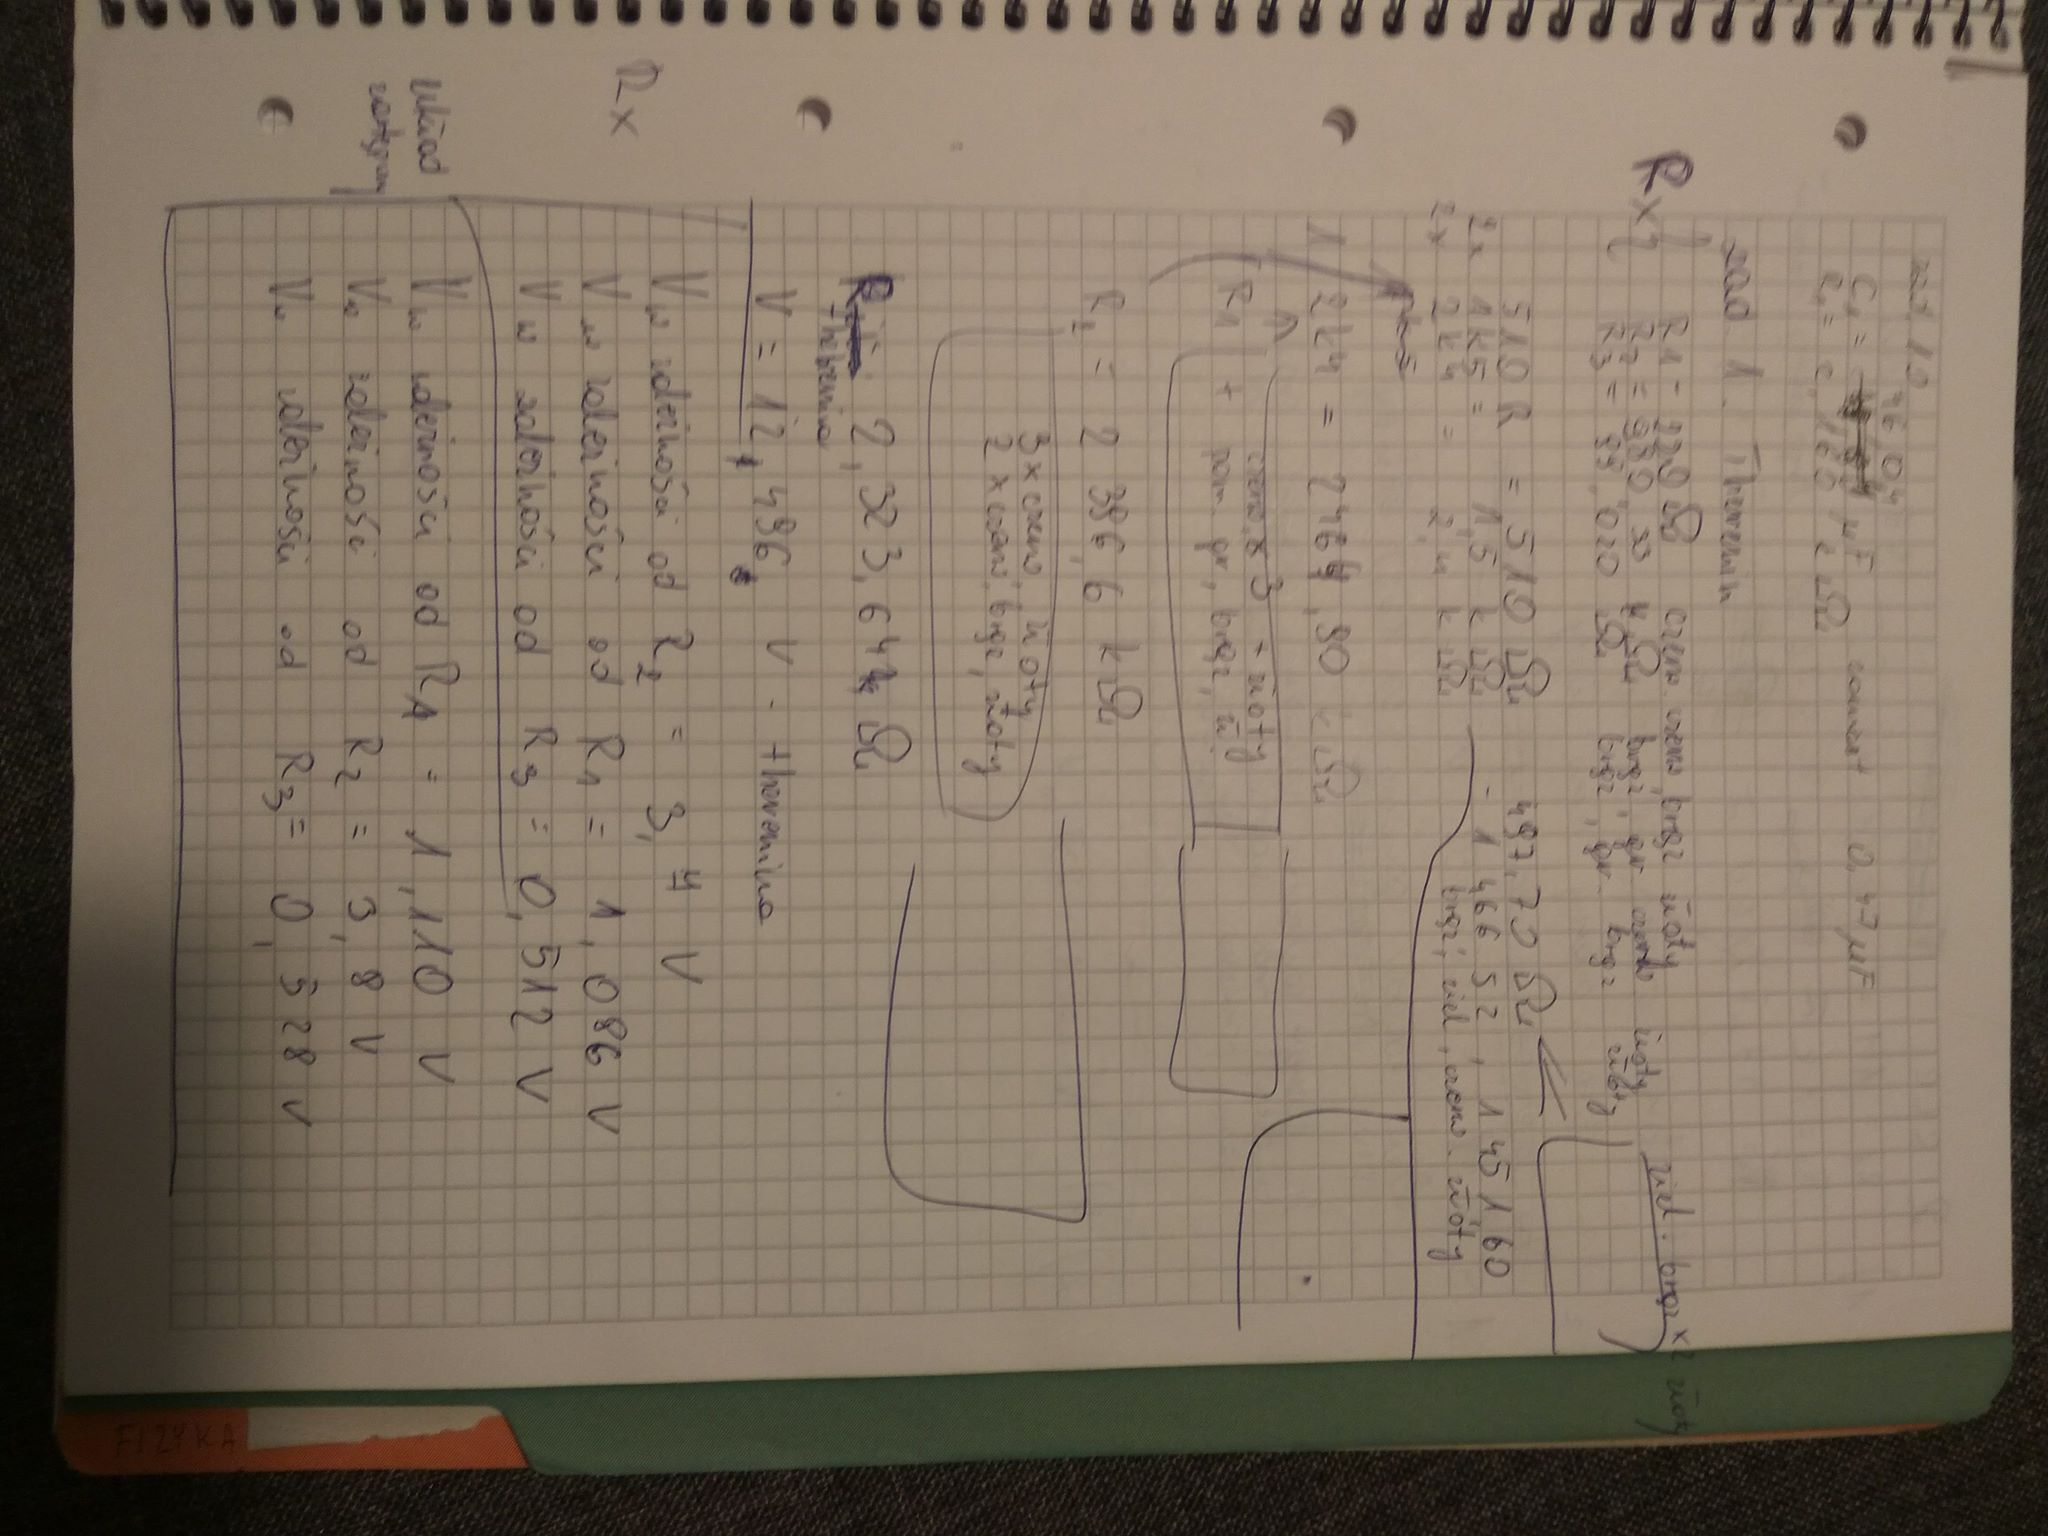 zad. 10
46,04
C₁ = μF zamiast 0,47 μF
R₁ = 2,160 kΩ
zad 1. Thevenin
Rx
R1 = 220 Ω czerw. czerw, brąz złoty
R2 = 980,90 kΩ brąz, gr czerw złoty
R3 = 99,020 Ω brąz, gr. brąz złoty
ziel. brąz x2 złoty
510R = 510 Ω 497,70 Ω
2x 1k5 = 1,5 kΩ - 1 466 52, 1 451,60
2x 2k4 = 2,4 kΩ brąz, ziel, czerw. złoty
1 2k4 = 2464,90 kΩ
czerw. x 3 + złoty
R1 + pom. gr, brąz, zł.
R₂ = 2 396,6 kΩ
3x czerw, złoty
2 x czerw, brąz, złoty
R 2,323,64 Ω
V = 12,496 V -
Rx
V w zależności od R₂ = 3,7 V
V w zależności od R₁ = 1,086 V
V w zależności od R₃ = 0,512 V
układ
zastępczy
V w zależności od R1 = 1,110 V
V w zależności od R₂ = 3,8 V
V w zależności od R₃ = 0,528 V
FIZYKA